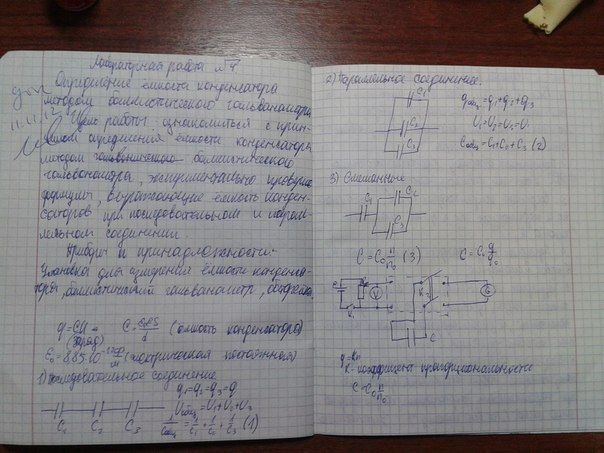 Лабораторная работа №4
Определение ёмкости конденсатора
методом баллистического гальванометра
11.11.12
Цель работы - ознакомиться с прин-
определения ёмкости конденсатора
методом баллистического
гальванометра, экспериментально проверить
формулы, выражающие ёмкость конден-
саторов при последовательном и парал-
лельном соединении.
Приборы и принадлежности:
Установка для измерения ёмкости конденса-
торы, баллистический гальванометр,
q=CU - C=ε₀εS/d (ёмкость конденсатора)
(заряд)
(электрическая постоянная)
1) последовательное соединение
q₁=q₂=q₃=q
Uобщ=U₁+U₂+U₃
C₁ C₂ C₃ 1/Cобщ=1/C₁+1/C₂+1/C₃ (1)
2) Параллельное соединение.
C₁
C₂
C₃
qобщ=q₁+q₂+q₃
U₁=U₂=U₃=U
Cобщ=C₁+C₂+C₃ (2)
3) Смешанное
C₁ C₂
C₃
C=C₀ n/n₀ (3) C=C₀ q/q₀
V K G
K₁
C
q=kn
k-коэффициент пропорциональности
C=C₀ n/n₀